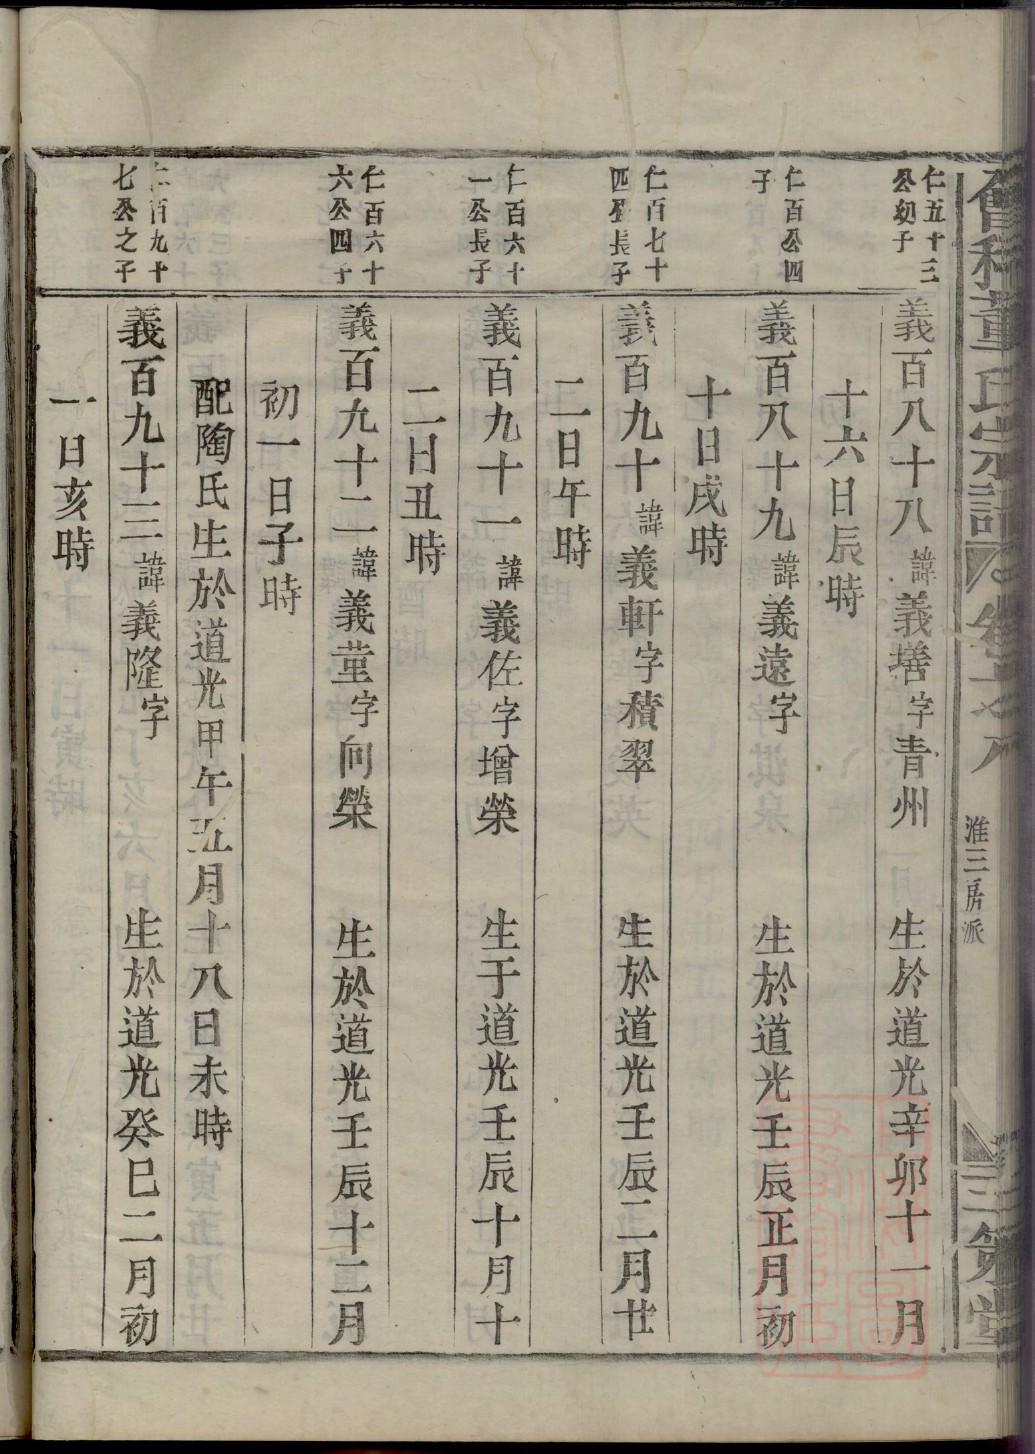 會稽董氏宗譜 卷之八 淮三房派 三策堂
仁五十三
公幼子
義百八十八諱義㙻字青州 生於道光辛卯十一月
十六日辰時
仁百公四
子
義百八十九諱義遠字 生於道光壬辰正月初
十日戌時
仁百七十
四公長子
義百九十諱義軒字積翠 生於道光壬辰二月廿
二日午時
仁百六十
一公長子
義百九十一諱義佐字增榮 生于道光壬辰十月十
二日丑時
仁百六十
六公四子
義百九十二諱義堇字向榮 生於道光壬辰十二月
初一日子時
配陶氏生於道光甲午五月十八日未時
仁百九十
七公之子
義百九十三諱義隆字 生於道光癸巳二月初
一日亥時